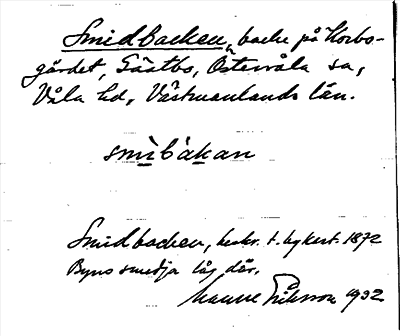 Smidbacken, backe på Korbo-
gärdet, Gästbo, Östervåla sn,
Våla hd, Västmanlands län.
smìbákan
Smidbacken, beskr. t. lagaskart. 1872
Byns smedja låg där.
Manne Eriksson 1932